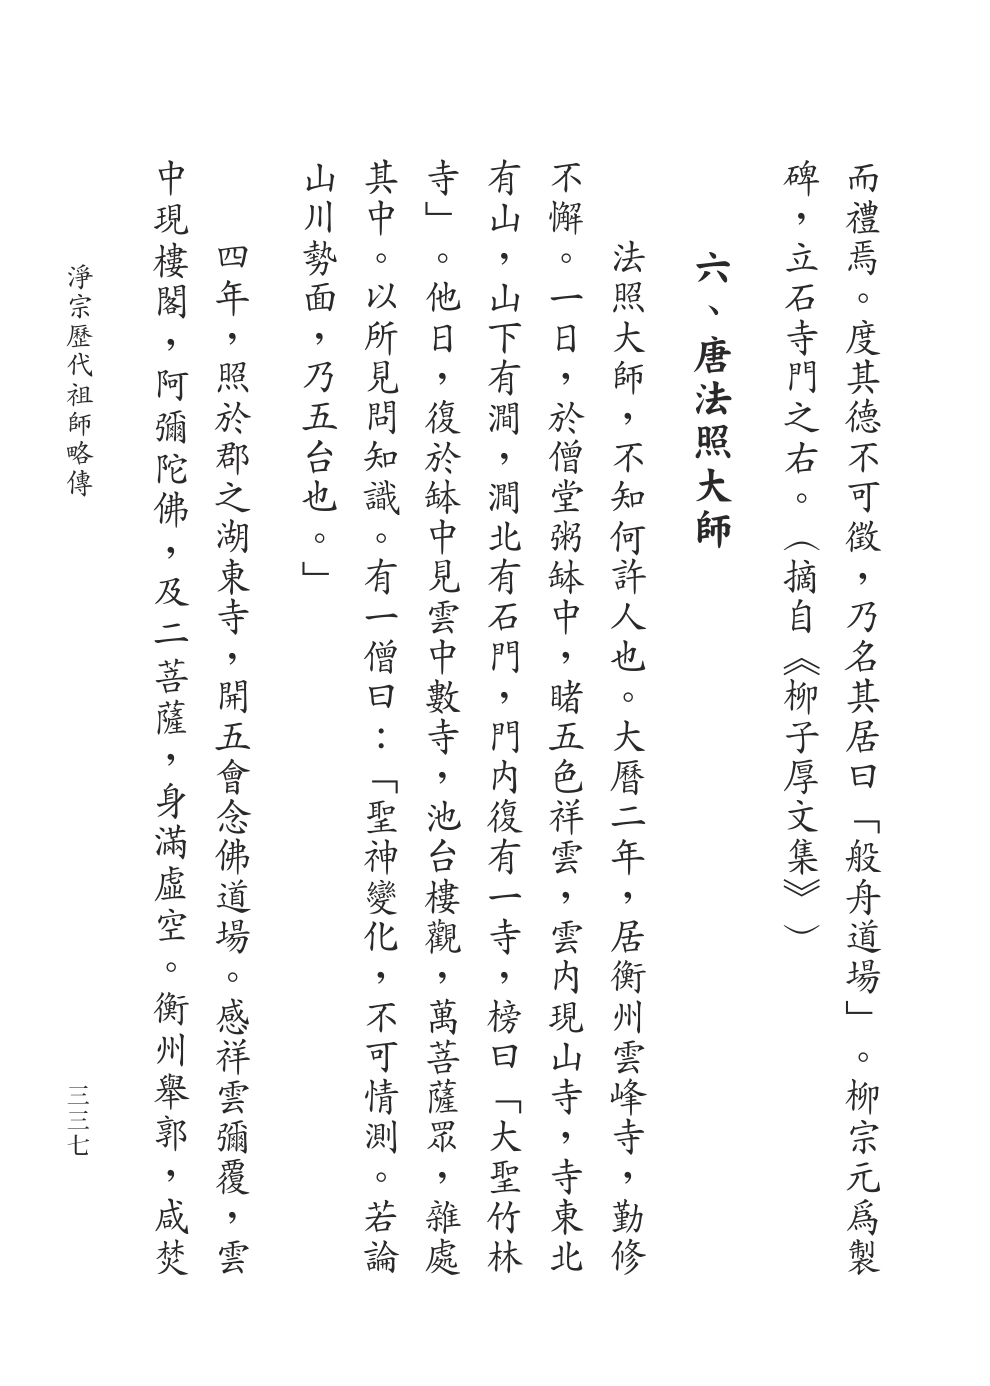 而禮焉。度其德不可徵，乃名其居曰「般舟道場」。柳宗元爲製
碑，立石寺門之右。（摘自《柳子厚文集》）
六、唐法照大師
法照大師，不知何許人也。大曆二年，居衡州雲峰寺，勤修
不懈。一日，於僧堂粥鉢中，睹五色祥雲，雲內現山寺，寺東北
有山，山下有澗，澗北有石門，門內復有一寺，榜曰「大聖竹林
寺」。他日，復於鉢中見雲中數寺，池台樓觀，萬菩薩眾，雜處
其中。以所見問知識。有一僧曰：「聖神變化，不可情測。若論
山川勢面，乃五台也。」
四年，照於郡之湖東寺，開五會念佛道場。感祥雲彌覆，雲
中現樓閣，阿彌陀佛，及二菩薩，身滿虛空。衡州舉郭，咸焚
淨宗歷代祖師略傳
三三七